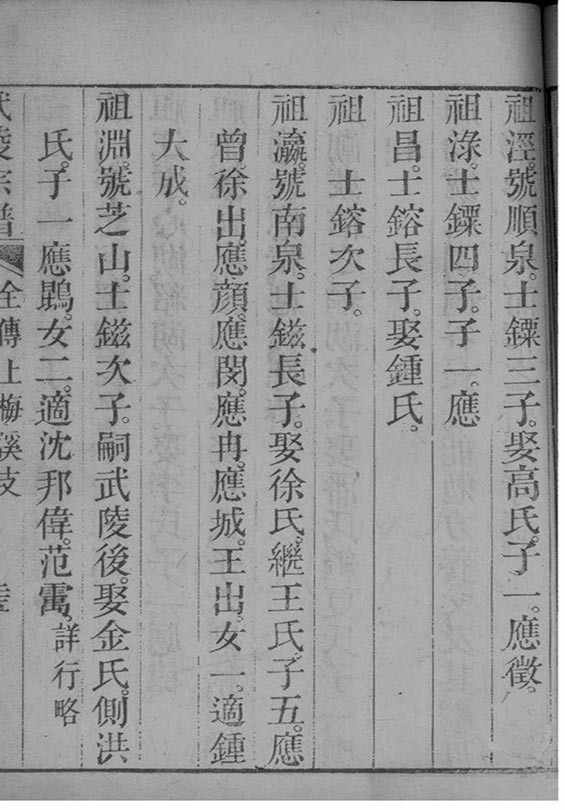 祖涇。號順泉。士鏢三子。娶高氏。子一。應徵。
祖淥。士鏢四子。子一。應
祖昌。士鎔長子。娶鍾氏。
祖 士鎔次子。
祖瀛。號南泉。士鎡長子。娶徐氏。繼王氏。子五。應
曾。徐出。應顏。應閔。應冉。應城。王出。女一。適鍾
大成。
祖淵。號芝山。士鎡次子。嗣武陵後。娶金氏。側洪
氏。子一應鵾。女二。適沈邦偉。范寯。詳行略
武陵宗譜 全傳上梅溪支